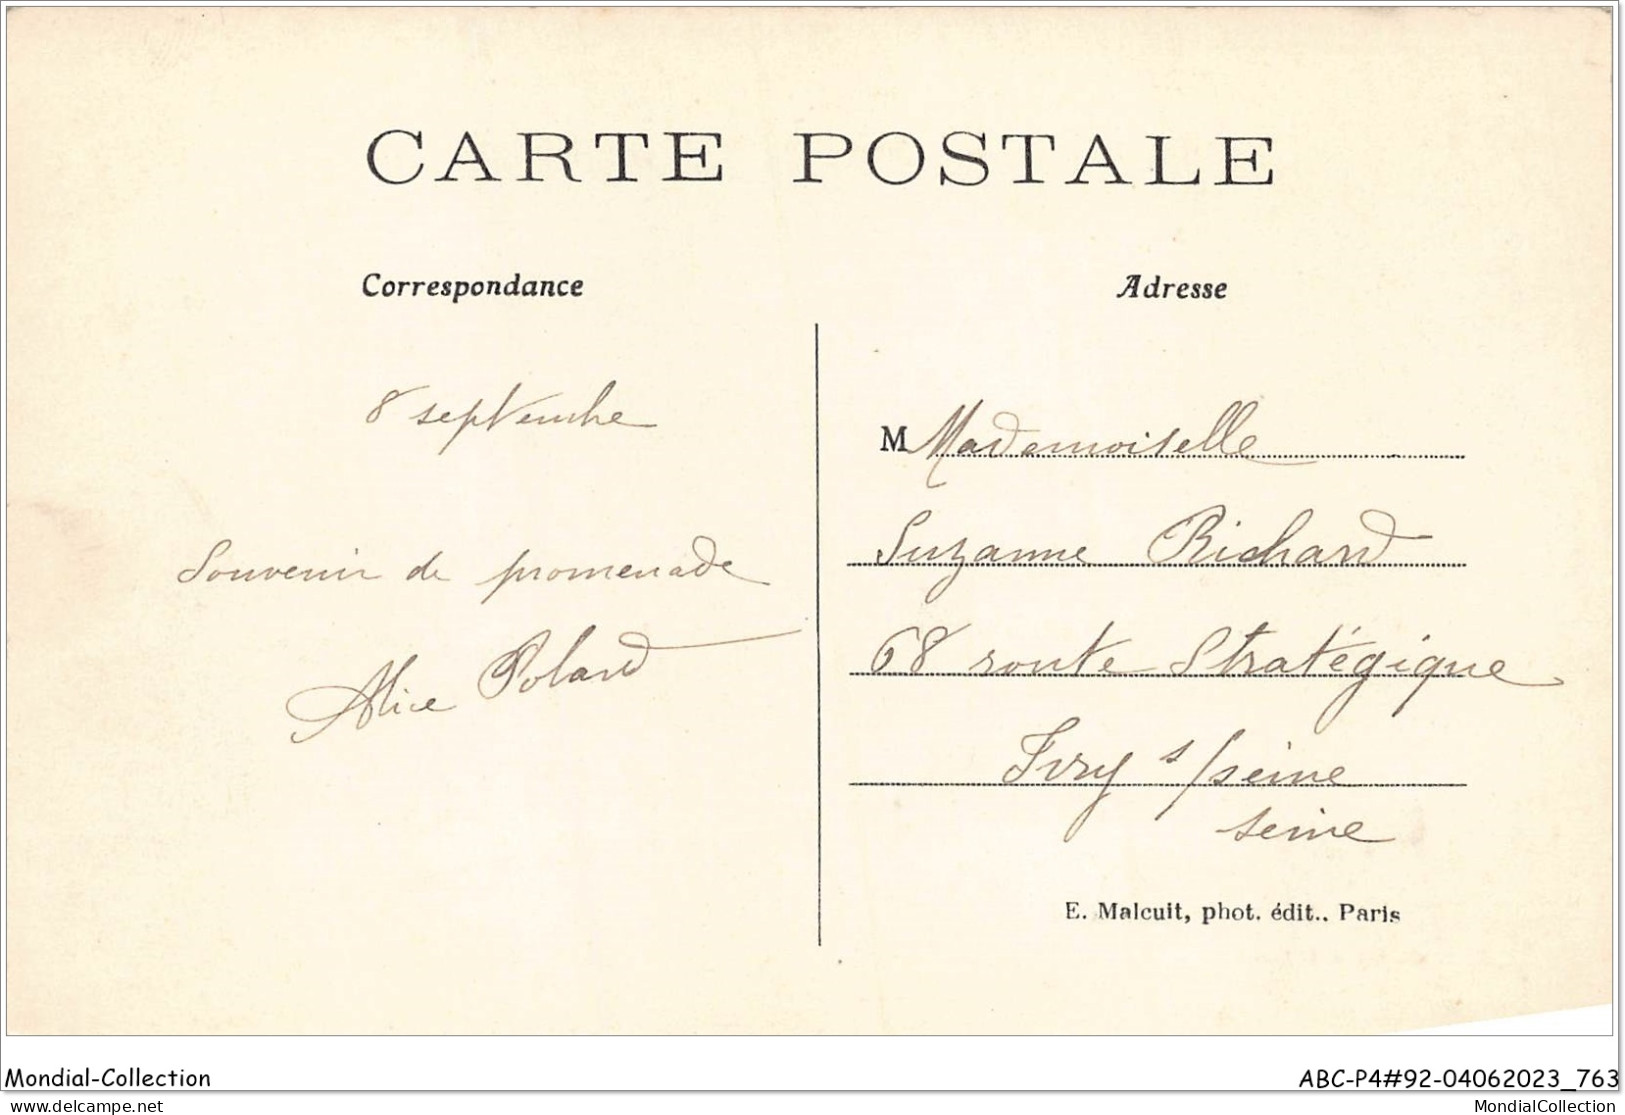 CARTE POSTALE
Correspondance
8 septembre
Souvenir de promenade
Alice Polard
Adresse
M Mademoiselle
Suzanne Richard
68 route Stratégique
Ivry s/seine
seine
E. Malcuit, phot. édit.. Paris
Mondial-Collection
ABC-P4#92-04062023_763
www.delcampe.net
MondialCollection